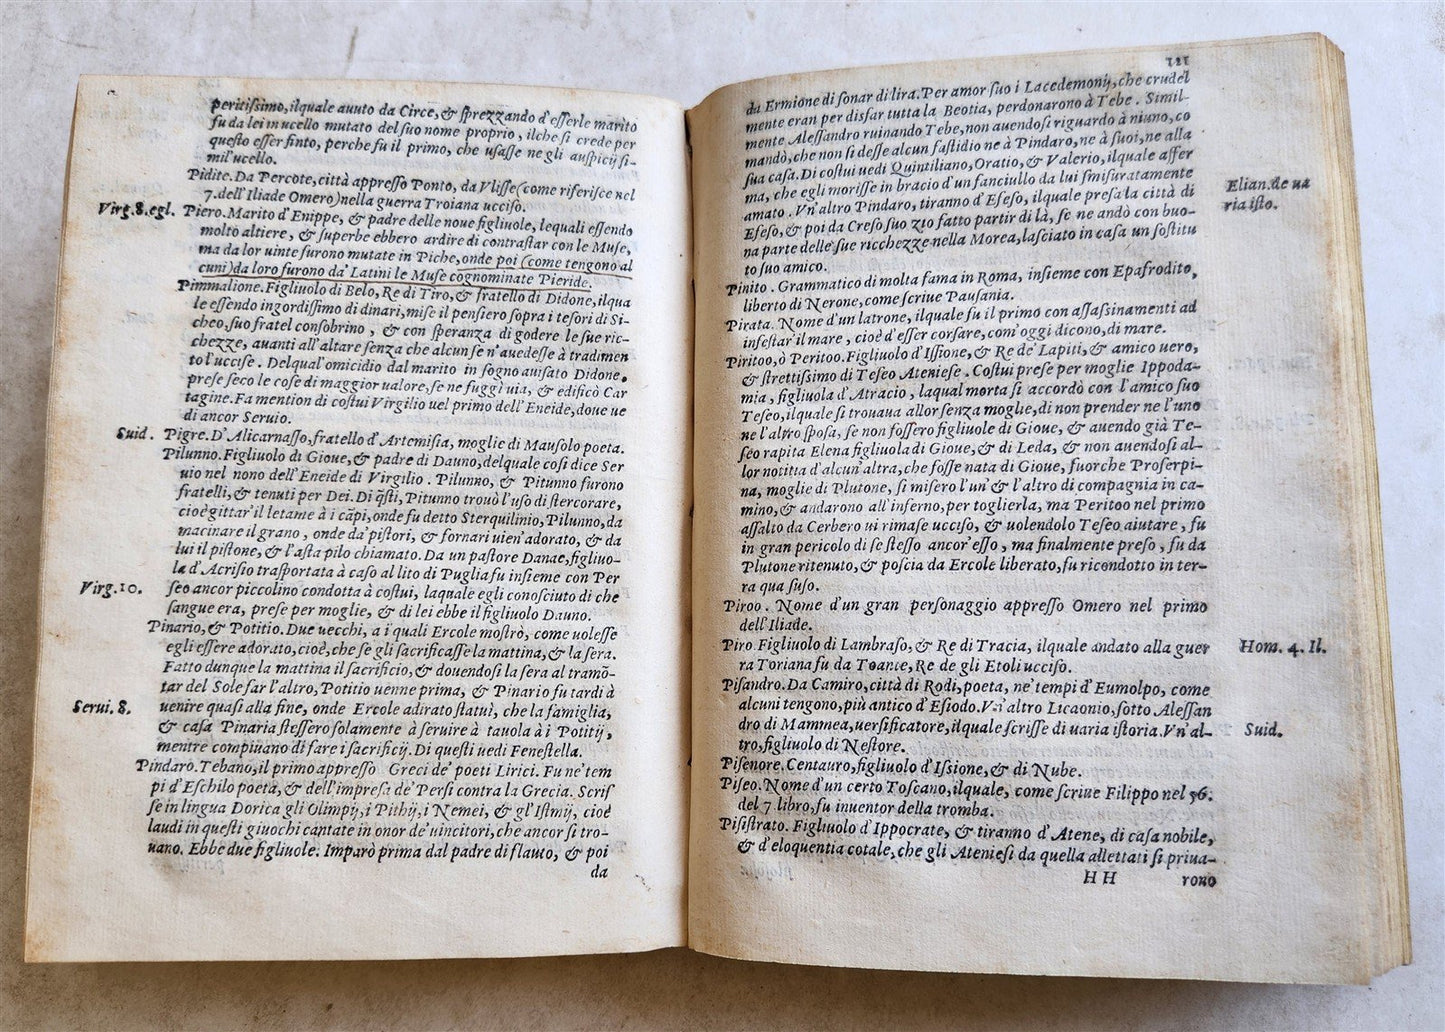 peritissimo, ilquale auuto da Circe, & sprezzando d'esserle marito
fu da lei in ucello mutato del suo nome proprio, ilche si crede per
questo esser finto, perche fu il primo, che usasse ne gli auspicij si-
mil'ucello.
Pidite. Da Percote, città appresso Ponto, da Vlisse (come riferisce nel
7. dell'Iliade Omero) nella guerra Troiana ucciso.
Virg. 8. egl.
Piero. Marito d'Enippe, & padre delle noue figliuole, lequali essendo
molto altiere, & superbe ebbero ardire di contrastar con le Muse,
ma da lor uinte furono mutate in Piche, onde poi (come tengono al
cuni) da loro furono da' Latini le Muse cognominate Pieride.
Pimmalione. Figliuolo di Belo, Re di Tiro, & fratello di Didone, ilqua
le essendo ingordissimo di dinari, mise il pensiero sopra i tesori di Si-
cheo, suo fratel consobrino, & con speranza di godere le sue ric-
chezze, auanti all'altare senza che alcun se n'auedesse à tradimen
to l'uccise. Delqual'omicidio dal marito in sogno auisato Didone,
prese seco le cose di maggior ualore, se ne fuggì uia, & edificò Car
tagine. Fa mention di costui Virgilio uel primo dell'Eneide, doue ue
di ancor Seruio.
Suid.
Pigre. D'Alicarnasso, fratello d'Artemisia, moglie di Mausolo poeta.
Pilunno. Figliuolo di Gioue, & padre di Dauno, delquale cosi dice Ser
uio nel nono dell'Eneide di Virgilio. Pilunno, & Pitunno furono
fratelli, & tenuti per Dei. Di q̃sti, Pitunno trouò l'uso di stercorare,
cioè gittar'il letame à i cãpi, onde fu detto Sterquilinio, Pilunno, da
macinare il grano, onde da' pistori, & fornari uien'adorato, & da
lui il pistone, & l'asta pilo chiamato. Da un pastore Danae, figliuo-
la d'Acrisio trasportata à caso al lito di Puglia fu insieme con Per
Virg. 10.
seo ancor piccolino condotta à costui, laquale egli conosciuto di che
sangue era, prese per moglie, & di lei ebbe il figliuolo Dauno.
Pinario, & Potitio. Due uecchi, a i quali Ercole mostrò, come uolesse
egli essere adorato, cioè, che se gli sacrificasse la mattina, & la sera.
Fatto dunque la mattina il sacrificio, & douendosi la sera al tramõ-
tar del Sole far l'altro, Potitio uenne prima, & Pinario fu tardi à
Serui. 8.
uenire quasi alla fine, onde Ercole adirato statuì, che la famiglia,
& casa Pinaria stessero solamente à seruire à tauola à i Potitij,
mentre compiuano di fare i sacrificij. Di questi uedi Fenestella.
Pindaro. Tebano, il primo appresso Greci de' poeti Lirici. Fu ne' tem
pi d'Eschilo poeta, & dell'impresa de' Persi contra la Grecia. Scris
se in lingua Dorica gli Olimpij, i Pithij, i Nemei, & gl'Istmij, cioè
laudi in questi giuochi cantate in onor de' uincitori, che ancor si tro-
uano. Ebbe due figliuole. Imparò prima dal padre di flauto, & poi
da
111
da Ermione di sonar di lira. Per amor suo i Lacedemonij, che crudel
mente eran per disfar tutta la Beotia, perdonarono à Tebe. Simil-
mente Alessandro ruinando Tebe, non auendosi riguardo à niuno, co
mandò, che non si desse alcun fastidio nè à Pindaro, ne à suoi, ne alla
sua casa. Di costui uedi Quintiliano, Oratio, & Valerio, ilquale affer
ma, che egli morisse in braccio d'un fanciullo da lui smisuratamente
Elian. de ua
ria isto.
amato. Vn'altro Pindaro, tiranno d'Efeso, ilquale presa la città di
Efeso, & poi da Creso suo zio fatto partir di là, se ne andò con buo-
na parte delle sue ricchezze nella Morea, lasciato in casa un sostitu
to suo amico.
Pinito. Grammatico di molta fama in Roma, insieme con Epafrodito,
liberto di Nerone, come scriue Pausania.
Pirata. Nome d'un latrone, ilquale fu il primo con assassinamenti ad
infestar'il mare, cioè d'esser corsare, com'oggi dicono, di mare.
Piritoo, ò Peritoo. Figliuolo d'Issione, & Re de' Lapiti, & amico uero,
& strettissimo di Teseo Ateniese. Costui prese per moglie Ippoda-
mia, figliuola d'Atracio, laqual morta si accordò con l'amico suo
Teseo, ilquale si trouaua allor senza moglie, di non prender ne l'uno
ne l'altro sposa, se non fossero figliuole di Gioue, & auendo già Te-
seo rapita Elena figliuola di Gioue, & di Leda, & non auendosi al-
lor notitia d'alcun'altra, che fosse nata di Gioue, fuorche Proserpi-
na, moglie di Plutone, si misero l'un' & l'altro di compagnia in ca-
mino, & andarono all'inferno, per toglierla, ma Peritoo nel primo
assalto da Cerbero ui rimase ucciso, & uolendolo Teseo aiutare, fu
in gran pericolo di se stesso ancor'esso, ma finalmente preso, fu da
Plutone ritenuto, & poscia da Ercole liberato, fu ricondotto in ter-
ra qua suso.
Piroo. Nome d'un gran personaggio appresso Omero nel primo
dell'Iliade.
Piro. Figliuolo di Lambraso, & Re di Tracia, ilquale andato alla guer
Hom. 4. Il.
ra Toriana fu da Toante, Re de gli Etoli ucciso.
Pisandro. Da Camiro, città di Rodi, poeta, ne' tempi d'Eumolpo, come
alcuni tengono, più antico d'Esiodo. Vn'altro Licaonio, sotto Alessan
dro di Mammea, uersificatore, ilquale scrisse di uaria istoria. Vn'al-
Suid.
tro, figliuolo di Nestore.
Pisenore. Centauro, figliuolo d'Issione, & di Nube.
Piseo. Nome d'un certo Toscano, ilquale, come scriue Filippo nel 56.
del 7 libro, fu inuentor della tromba.
Pisistrato. Figliuolo d'Ippocrate, & tiranno d'Atene, di casa nobile,
& d'eloquentia cotale, che gli Ateniesi da quella allettati si priua-
HH
rono